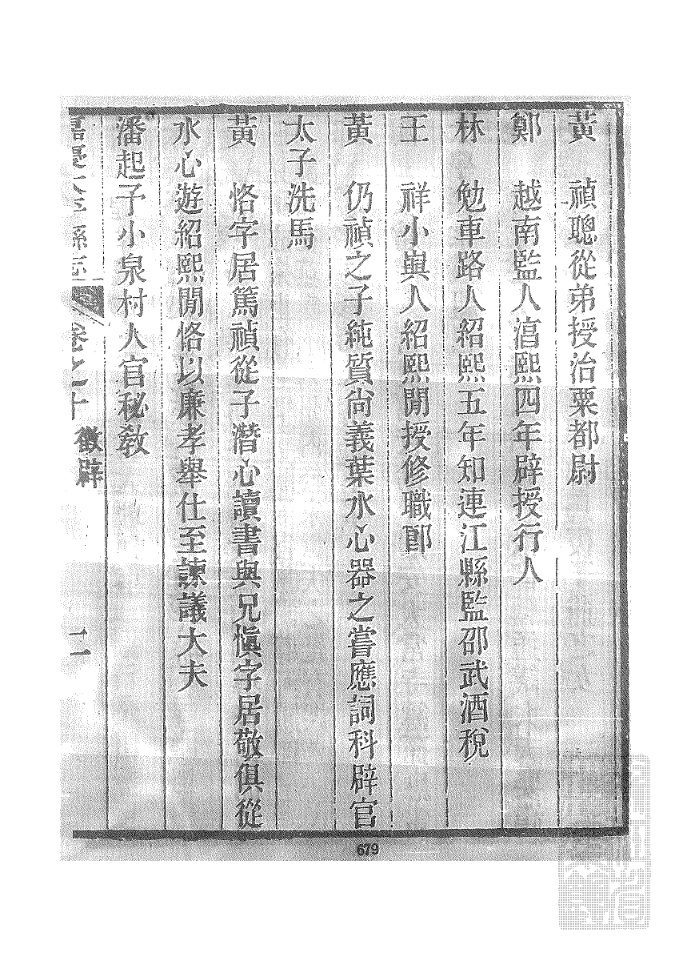 黃　禎聰從弟授治粟都尉
鄭　越南監人湻熙四年辟授行人
林　勉車路人紹熙五年知連江縣監邵武酒稅
王　祥小輿人紹熙閒授修職郎
黃　仍禎之子純質尙義葉水心器之嘗應詞科辟官
太子洗馬
黃　恪字居篤禎從子潛心讀書與兄愼字居敬俱從
水心遊紹熙閒恪以廉孝舉仕至諫議大夫
潘起予小泉村人官秘敎
嘉慶太平縣志 卷之十 徵辟 二
679